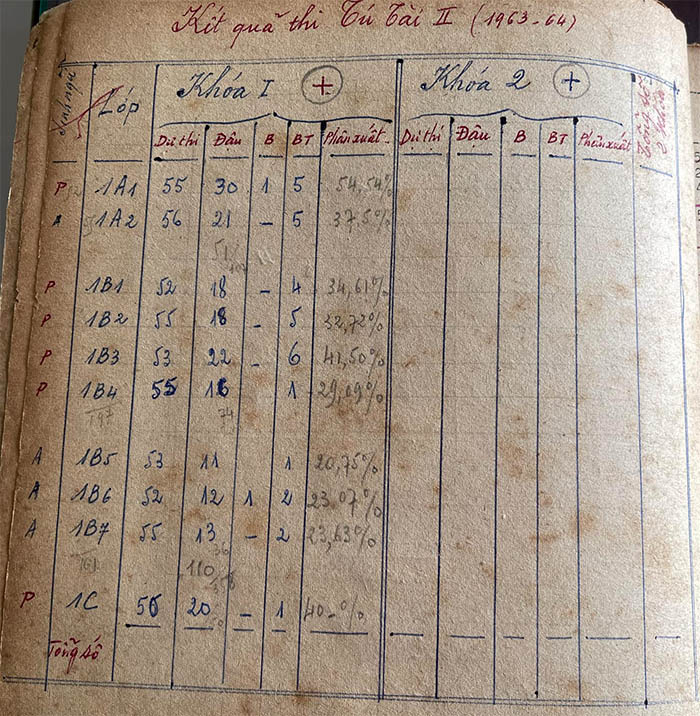 Kết quả thi Tú Tài II (1963-64)
Lớp Khóa I + Khóa 2 +
Dự thi Đậu B BT Phân xuất Dự thi Đậu B BT Phân xuất
P 1A1 55 30 1 5 54,54%
A 1A2 56 21 - 5 37,5%
51/
P 1B1 52 18 - 4 34,61%
P 1B2 55 18 - 5 32,72%
P 1B3 53 22 - 6 41,50%
P 1B4 55 16 1 29,09%
74
A 1B5 53 11 1 20,75%
A 1B6 52 12 1 2 23,07%
A 1B7 55 13 - 2 23,63%
36
110
P 1C 50 20 - 1 40-%
Tổng số